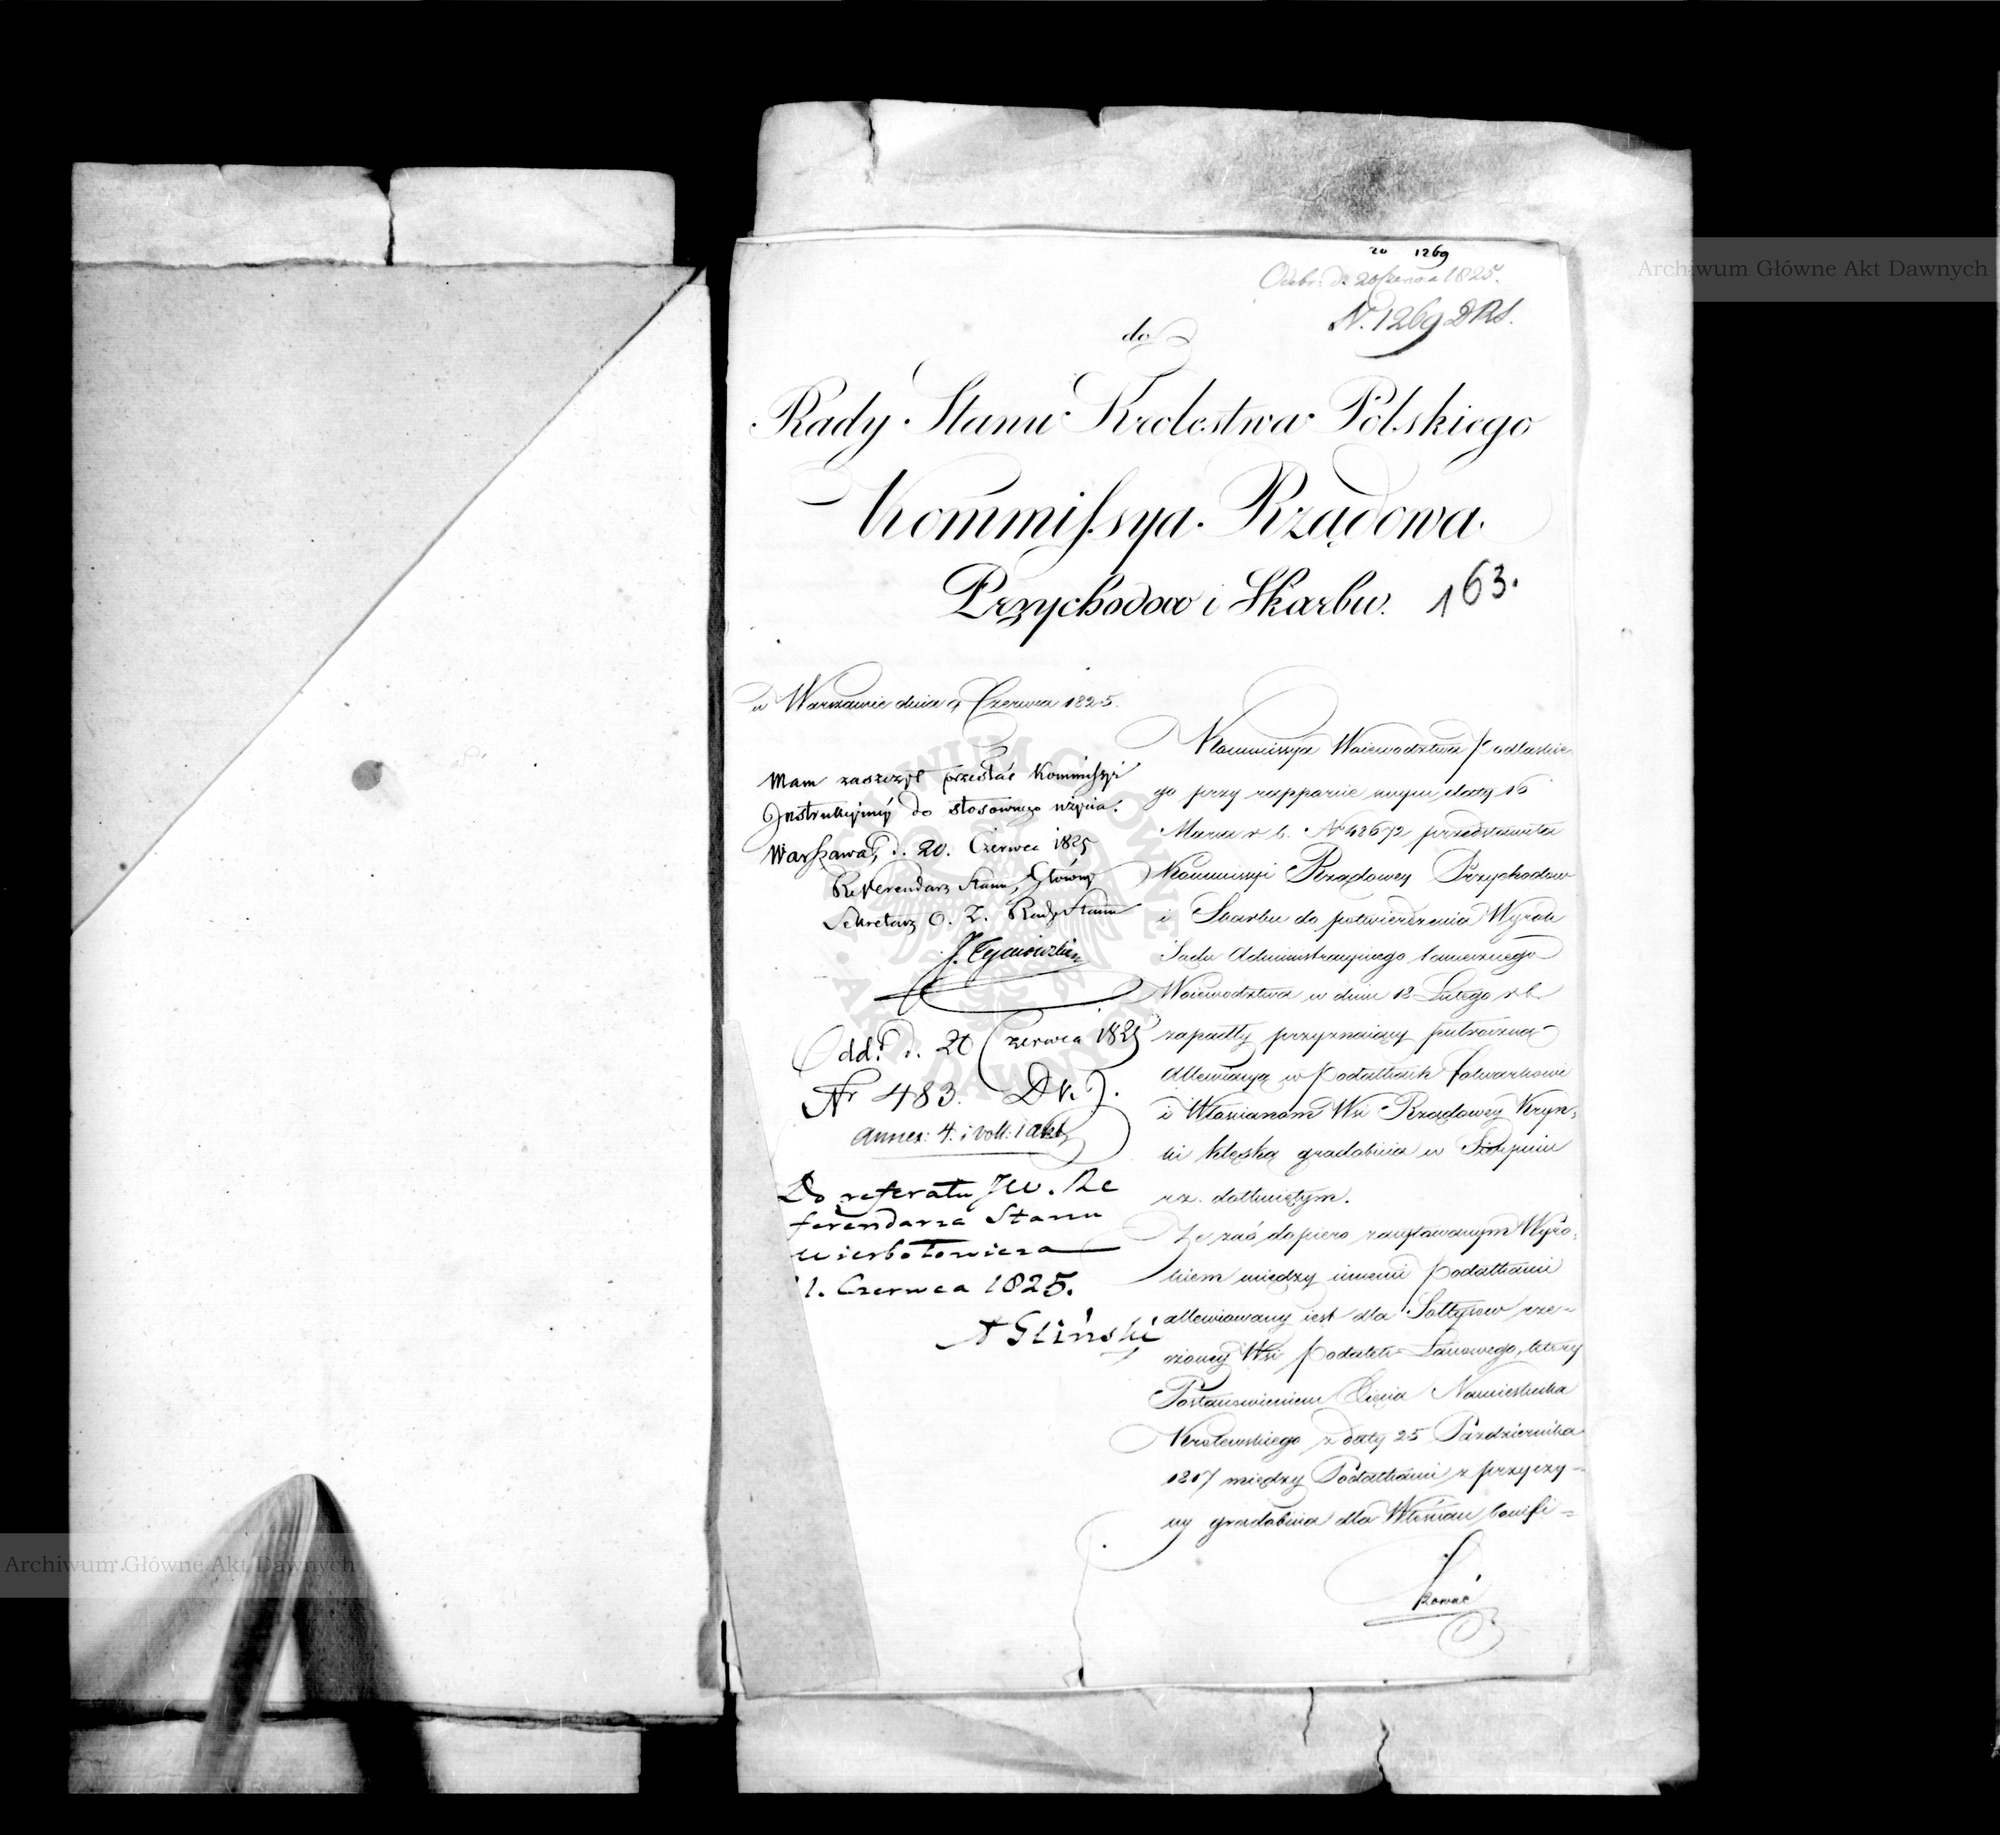 20 1269
Odebr: d. 20 Czerwca 1825.
N. 1269 DRS.
do
Rady Stanu Krolestwa Polskiego
Kommissya Rządowa
Przychodow i Skarbu.
163.
w Warszawie dnia Czerwca 1825.
Mam zaszczyt przesłać Kommissyi
Instrukcyjney do stosownego użycia.
Warszawa, d. 20. Czerwca 1825
Referendarz Stanu, Główny
Sekretarz O. Z. Rady Stanu
J.
Odd: d. 20 Czerwca 1825
Nr 483. DK J.
Annex: 4. i Voll: 1 akt
Do referatu JW. Re
ferendarza Stanu
Wierbołowicza
1. Czerwca 1825.
A Gliński
Kommissya Woiewodztwa Podlaskie
go przy rapporcie swym daty 16
Marca r. b. N 48672 przedstawiła
Kommissyi Rządowey Przychodow
i Skarbu do potwierdzenia Wyrok
Sądu Administracyinego tamecznego
Woiewodztwa w dniu 18 Lutego r b.
zapadły przyznaiący półroczną
allewiacyą w Podatkach folwarkowi
i Włościanom Wsi Rządowey Kryn-
ki klęską gradobicia w Sierpniu
r.z. dotkniętym.
Ze zaś dopiero zacytowanym Wyro-
kiem między innemi Podatkami
allewiowany iest dla Sołtysow rze-
czoney Wsi Podatek Łanowego, który
Postanowieniem Xięcia Namiestnika
Krolewskiego z daty 25 Pazdziernika
1817 między Podatkami z przyczy-
ny gradobicia dla Włościan bonifi-
kować
Archiwum Główne Akt Dawnych
Archiwum Główne Akt Dawnych